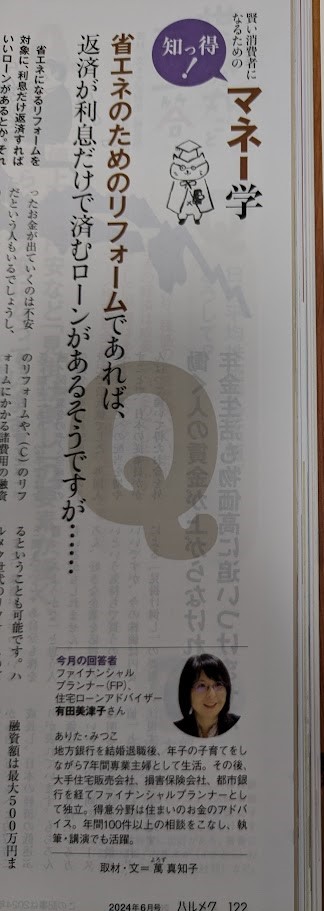 賢い消費者に
なるための
知っ得!
マネー学
省エネのためのリフォームであれば、
返済が利息だけで済むローンがあるそうですが……
Q
省エネになるリフォームを
対象に、利息だけ返済すれば
いいローンがあるとか。それ
ったお金が出ていくのは不安
だという人もいるでしょうし、
のリフォームや、(C)のリフ
ォームにかかる諸費用の融資
るということも可能です。ハ
融資額は最大500万円ま
今月の回答者
ファイナンシャル
プランナー(FP)、
住宅ローンアドバイザー
有田美津子さん
ありた・みつこ
地方銀行を結婚退職後、年子の子育てをし
ながら7年間専業主婦として生活。その後、
大手住宅販売会社、損害保険会社、都市銀
行を経てファイナンシャルプランナーとし
て独立。得意分野は住まいのお金のアドバ
イス。年間100件以上の相談をこなし、執
筆・講演でも活躍。
取材・文=萬 真知子
よろず
2024年6月号 ハルメク 122